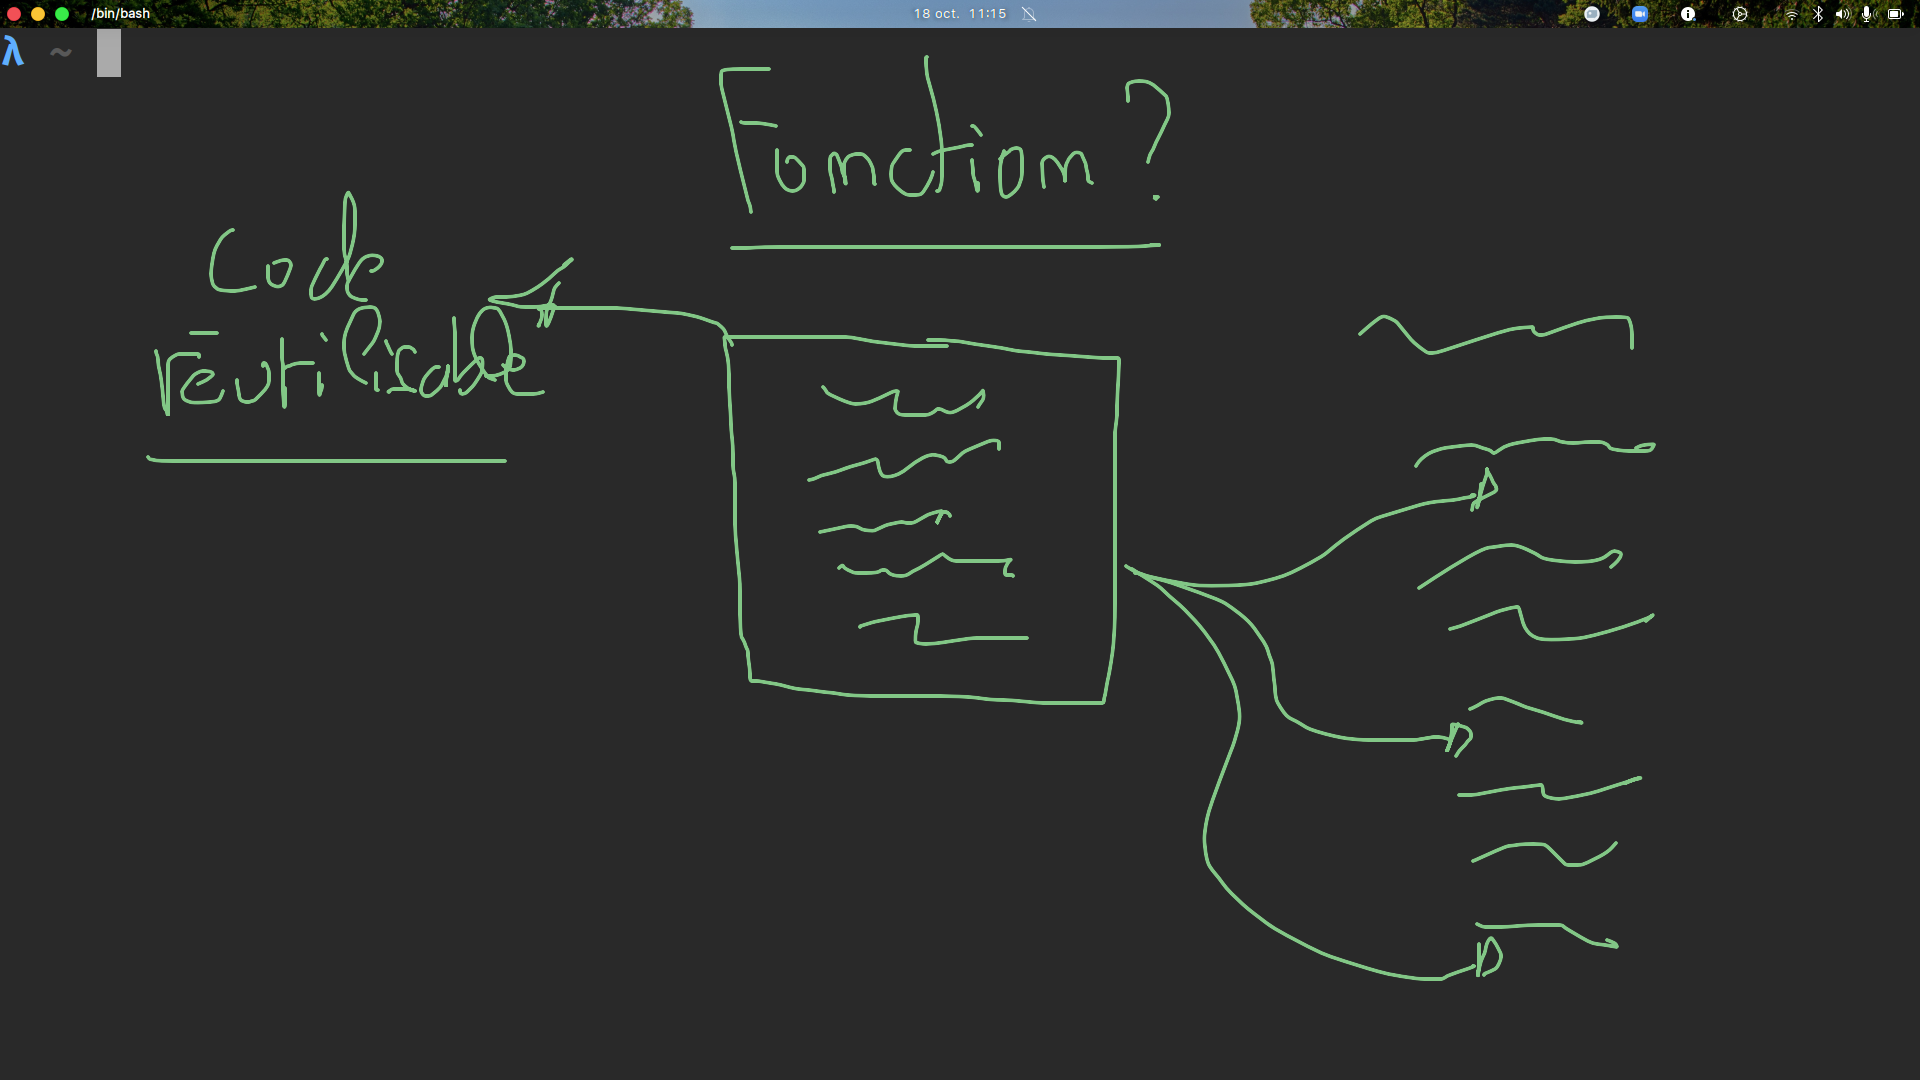 /bin/bash
18 oct. 11:15
λ ~
Fonction ?
Code
réutilisable